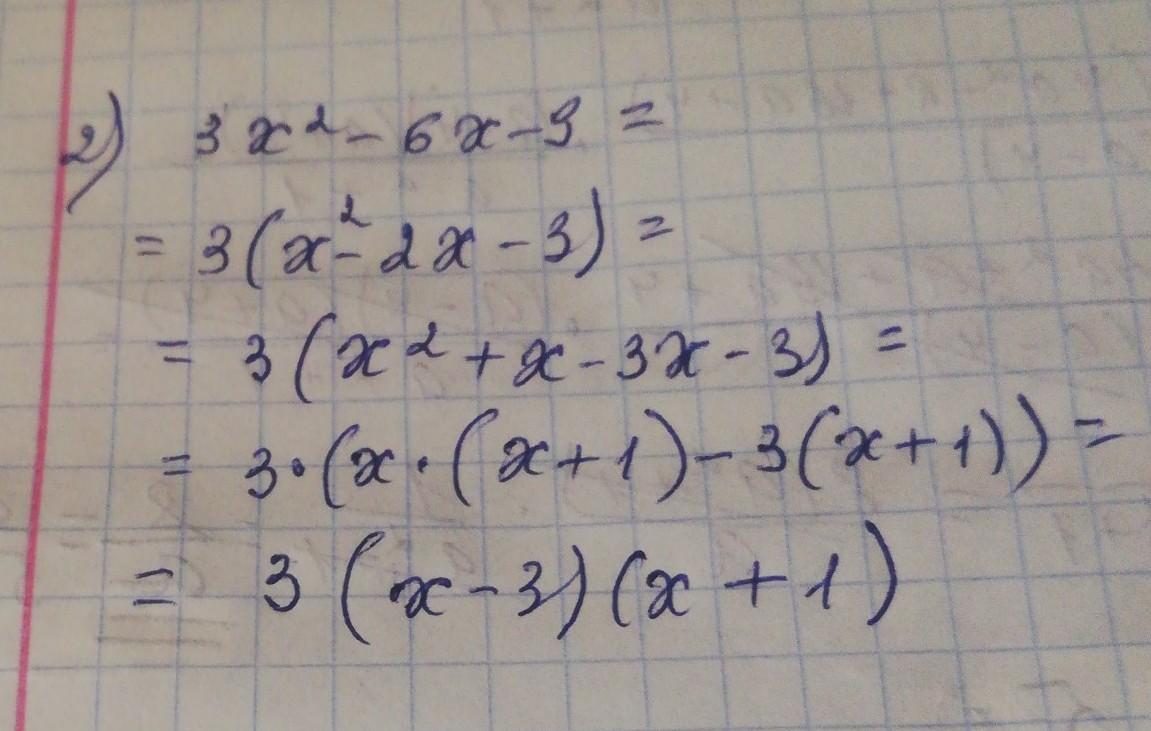 2) 3x² - 6x - 9 =
= 3(x² - 2x - 3) =
= 3(x² + x - 3x - 3) =
= 3·(x·(x+1) - 3(x+1)) =
= 3(x-3)(x+1)